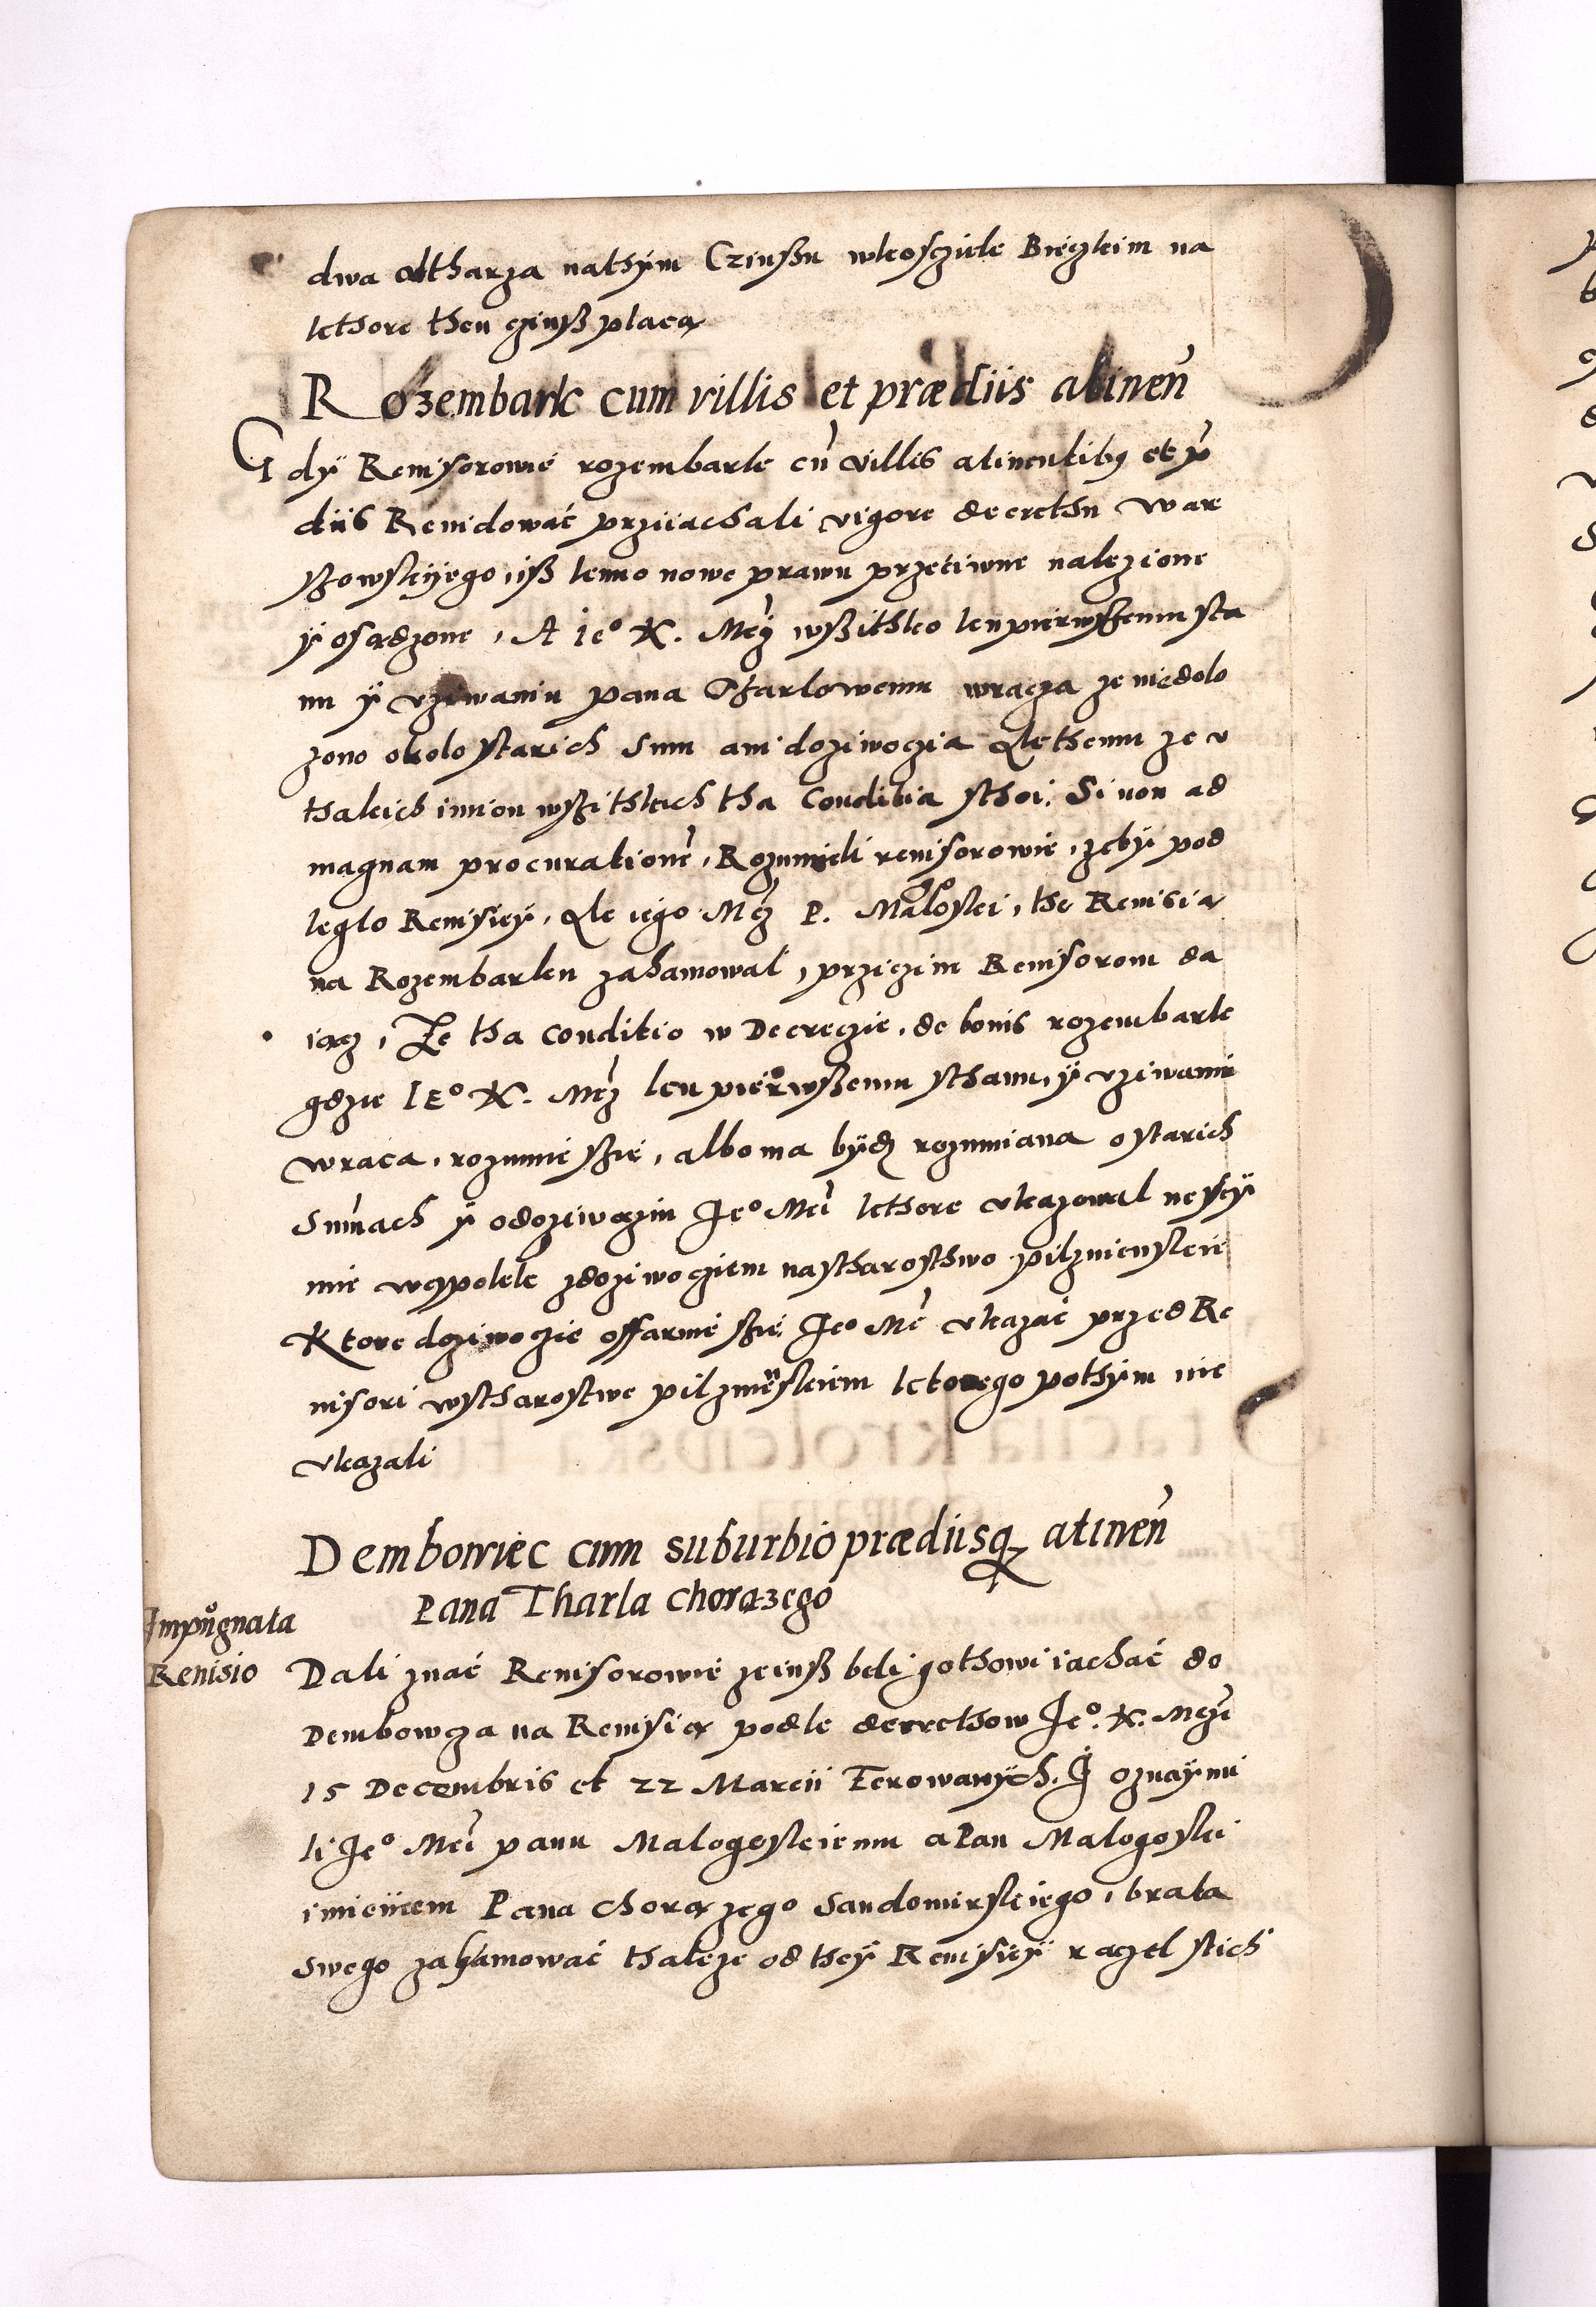 dwa altharza nathÿm Czinßu wkoscziele Bieczkim na
kthore then czinß placą
Rozembark cum villis et prædiis atinen̄
Gdÿ Revisorowie rozembark cū villis atinentibꝫ et p̄
diis Revidować prziiachali vigore decrethu War
szowskÿego, iß lenno nowe prawu przeciwne nalezione
ÿ osądzone, A ie° K. Mcz̄ wßithko ku pierwßemu sta
nu ÿ vziwaniu pana Tharlowemu wracza ze niedolo
zono okolo starich Sum ani doziwoczia Ale themu ze v
thakich imion wßithkich tha Conditia sthoi. Si non ad
magnam procurationē, Rozumieli revisorowie, zebÿ pod
leglo Revisiey, Ale iego Mcz P. Malo go ski, the Revisią
na Rozembarku zahamowal, prziczim Revisorom da
iącz, Ze tha Conditio w Decreczie, de bonis rozembark
gdzie IE° K. Mcz̄ ku pierwßemu sthanu, ÿ vziwaniu
wraca, rozumie ßie, albo ma bÿdź rozumiana o starich
Sum̄ach ÿ odoziwoczin Je° Mci kthore vkazowal nescÿ
mie wespolek zdoziwociem na stharosthwo pilznienskie
Ktore doziwoczie offarnie ßie Je° Mć vkazać przed Re
visori wstharostwe pilzmenskiem ktorego pothÿm nie
vkazali
Dembowiec cum suburbio prædiisqꝫ atinen̄
Pana Tharla chorązego
Impugnata
Revisio
Dali znać Revisorowie ze iuß beli gothowi iachać do
Dembowcza na Revisią podle decrethow Je°. K. Mcz̄i
15 Decembris et 22 Marcii Ferowanÿch. J oznaÿmi
li Je° Mci panu Malogoskiemu a Pan Malogoski
imieniem Pana chorązego Sandomirskiego, brata
swego zahamować thakze od theÿ Revisiey raczel stich